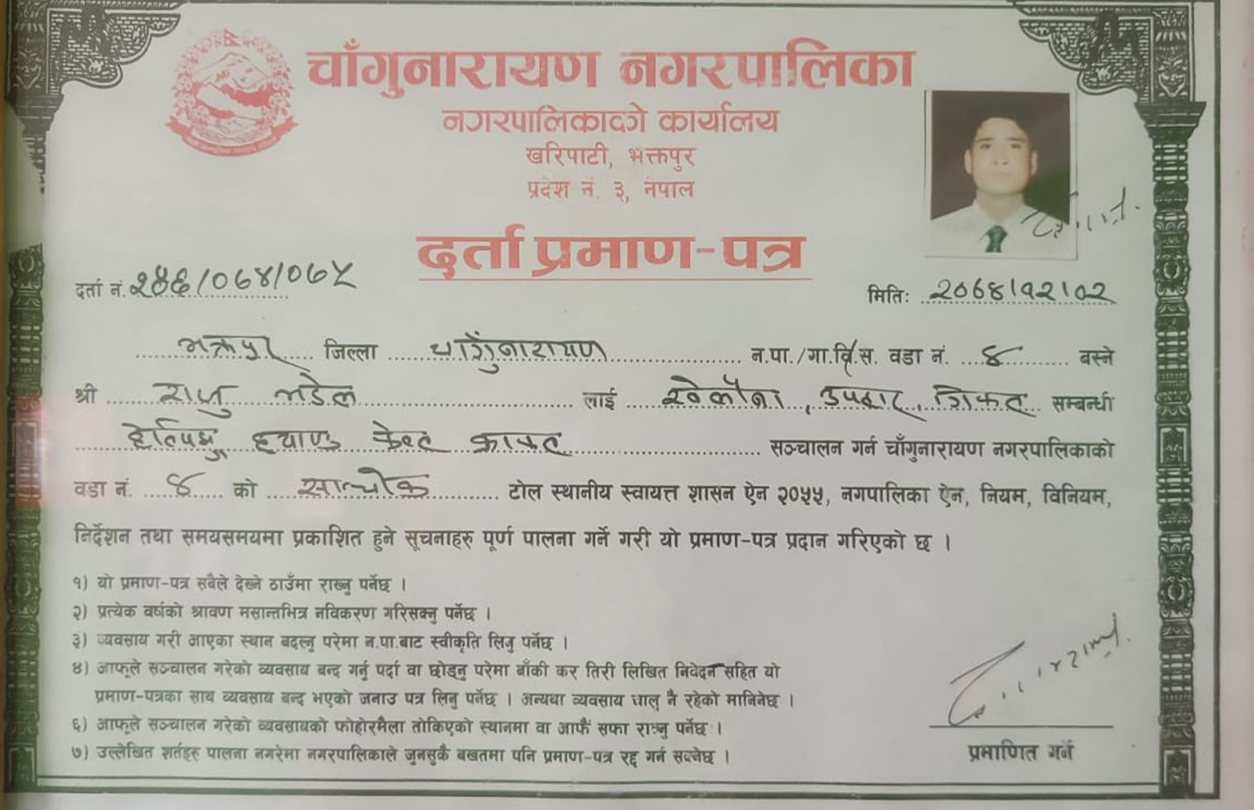 चाँगुनारायण नगरपालिका
नगरपालिकाको कार्यालय
खरिपाटी, भक्तपुर
प्रदेश नं. ३, नेपाल
दर्ता प्रमाण-पत्र
दर्ता नं. २४६/०७४/०७५
मितिः २०७४।१२।०२
भक्तपुर जिल्ला चाँगुनारायण न.पा./गा.वि.स. वडा नं. ४ बस्ने
श्री राजु भडेल लाई खेलौना, उपहार, गिफ्ट सम्बन्धी
ह्याण्ड क्राफ्ट सञ्चालन गर्न चाँगुनारायण नगरपालिकाको
वडा नं. ४ को टोल स्थानीय स्वायत्त शासन ऐन २०५५, नगपालिका ऐन, नियम, विनियम,
निर्देशन तथा समयसमयमा प्रकाशित हुने सूचनाहरु पूर्ण पालना गर्ने गरी यो प्रमाण-पत्र प्रदान गरिएको छ ।
१) यो प्रमाण-पत्र सबैले देख्ने ठाउँमा राख्नु पर्नेछ ।
२) प्रत्येक वर्षको श्रावण मसान्तभित्र नविकरण गरिसक्नु पर्नेछ ।
३) व्यवसाय गरी आएका स्थान बदल्नु परेमा न.पा.बाट स्वीकृति लिनु पर्नेछ ।
४) आफूले सञ्चालन गरेको व्यवसाय बन्द गर्नु पर्दा वा छोड्नु परेमा बाँकी कर तिरी लिखित निवेदन सहित यो
प्रमाण-पत्रका साथ व्यवसाय बन्द भएको जनाउ पत्र लिनु पर्नेछ । अन्यथा व्यवसाय चालु नै रहेको मानिनेछ ।
६) आफूले सञ्चालन गरेको व्यवसायको फोहोरमैला तोकिएको स्थानमा वा आफैं सफा राख्नु पर्नेछ ।
७) उल्लेखित शर्तहरु पालना नगरेमा नगरपालिकाले जुनसुकै बखतमा पनि प्रमाण-पत्र रद्द गर्न सक्नेछ ।
प्रमाणित गर्ने